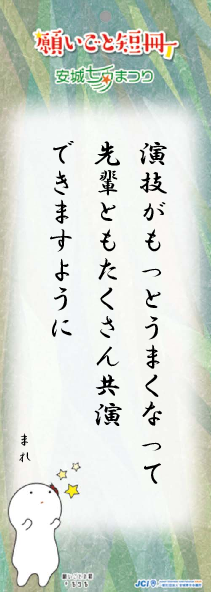 願いごと短冊
安城七夕まつり
演技がもっとうまくなって
先輩ともたくさん共演
できますように
まれ
JCI